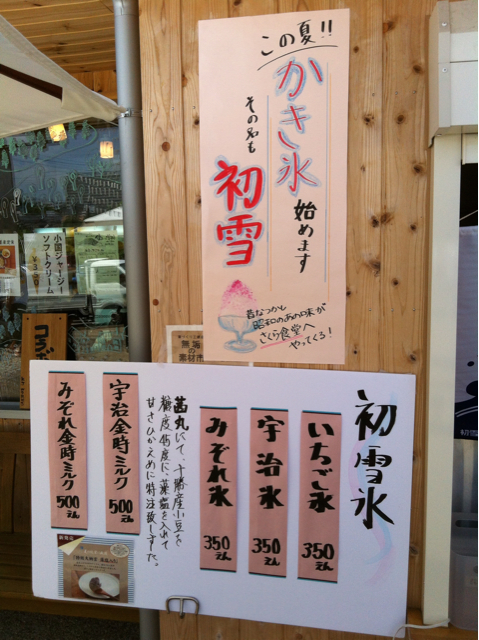 この夏!!
かき氷
始めます
その名も
初雪
昔なつかし
昭和のあの味が
さくら食堂へ
やってくる!
初雪氷
いちご氷
350えん
宇治氷
350えん
みぞれ氷
350えん
茜丸にて、十勝産小豆を
糖度何度に、藻塩を入れて
甘さひかえめに特注致しました。
宇治金時ミルク
500えん
みぞれ金時ミルク
500えん
小国ジャージー
ソフトクリーム